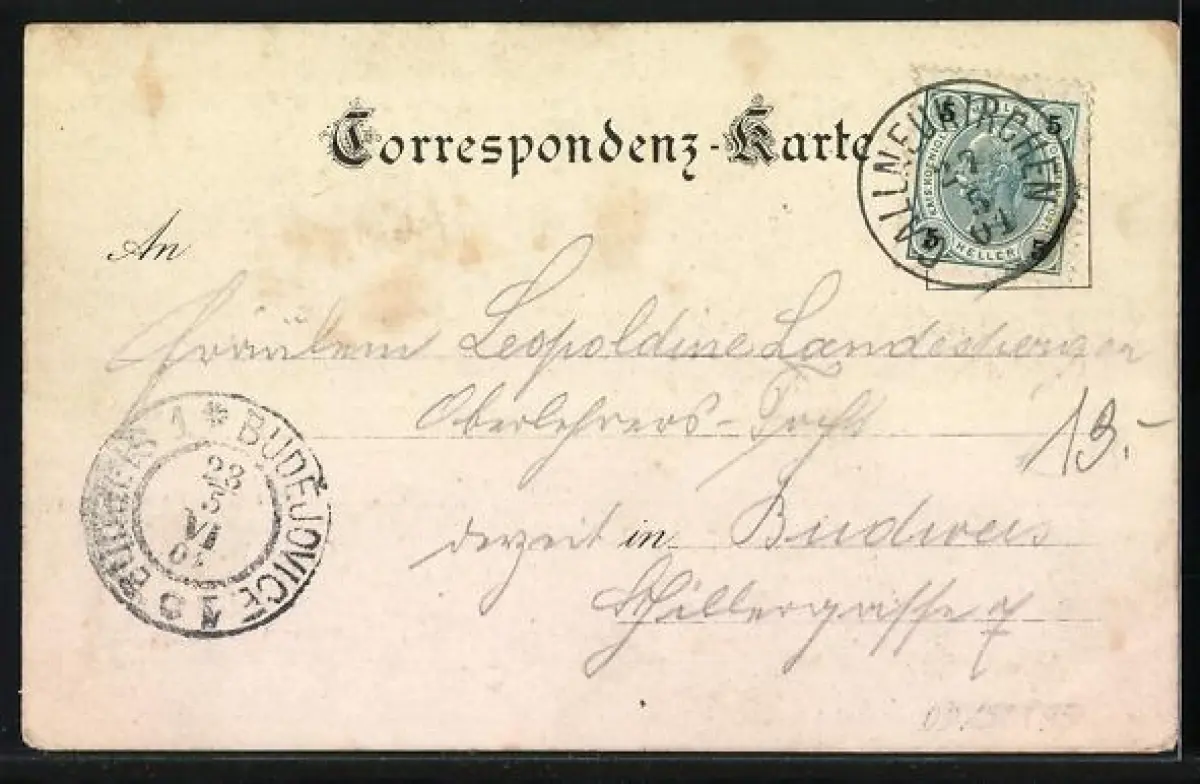 Correspondenz-Karte
GALLNEUKIRCHEN
5
01
5 5
5 5
HELLER
An
Fräulein Leopoldine Landesberger
Oberlehrers-Tocht
13.-
derzeit in Budweis
Schillergasse 7
BUDWEIS 1 * BUDĚJOVICE 1
23
5
01